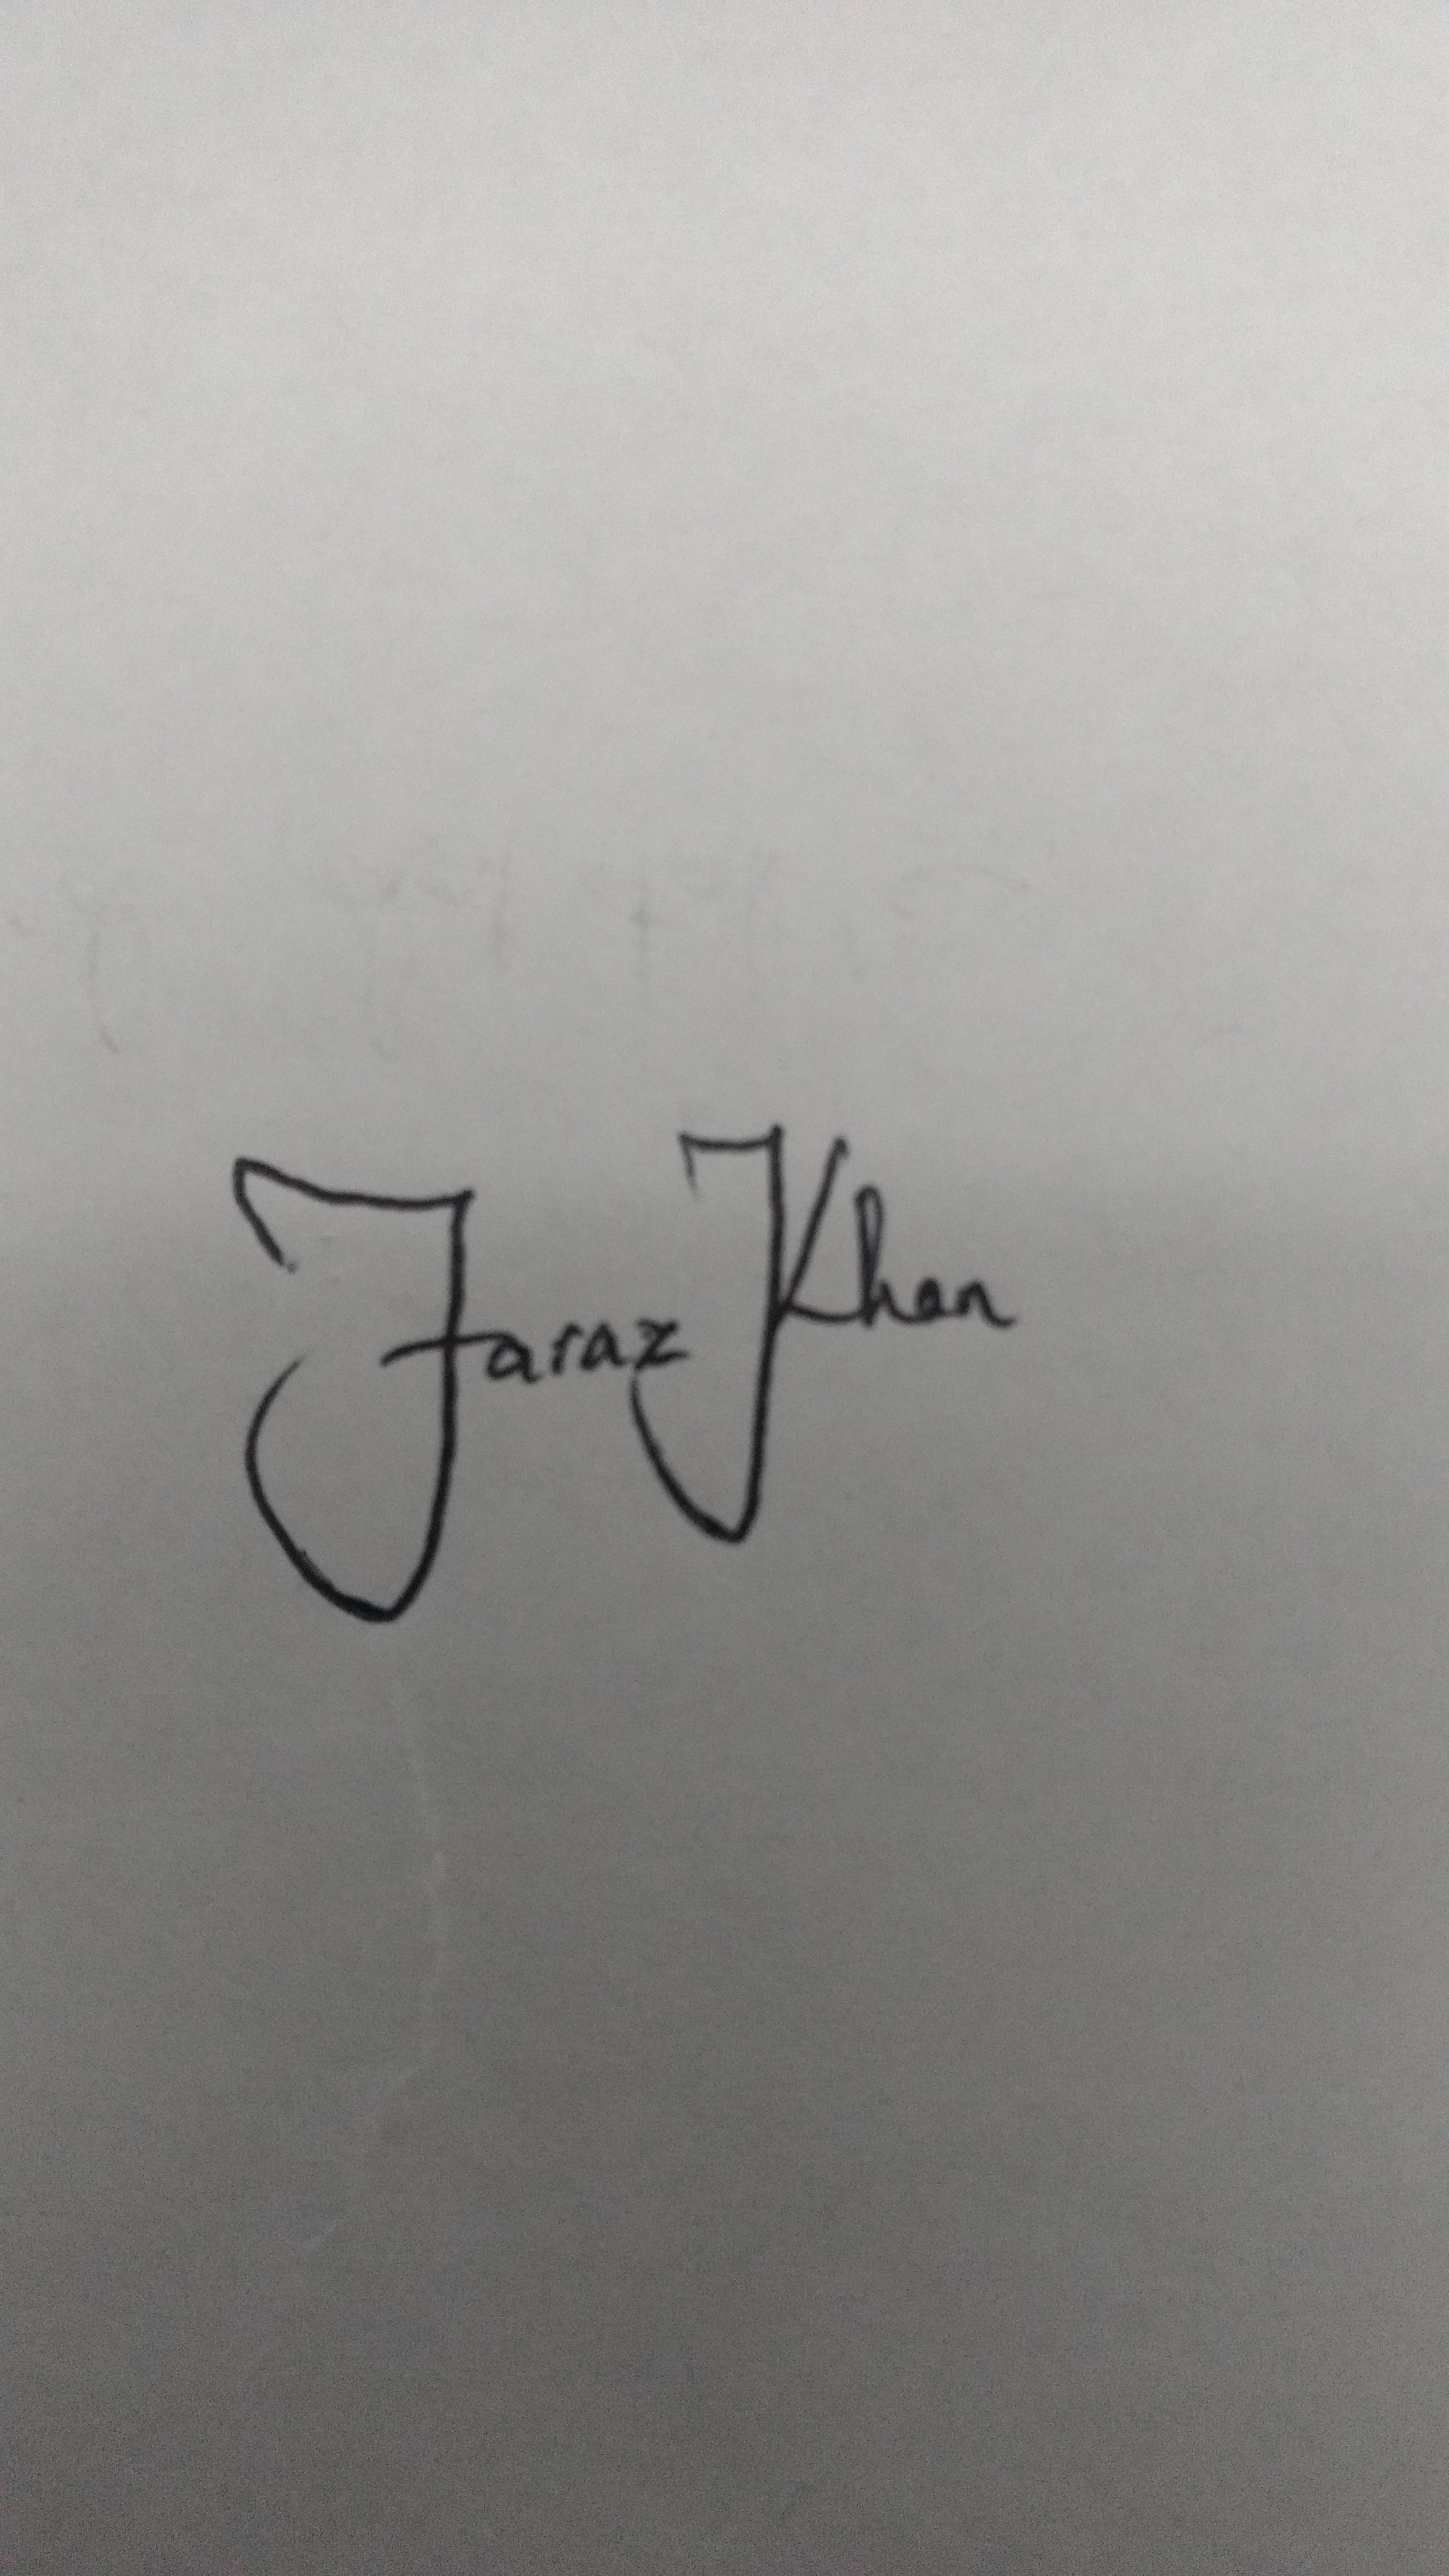 Faraz Khan